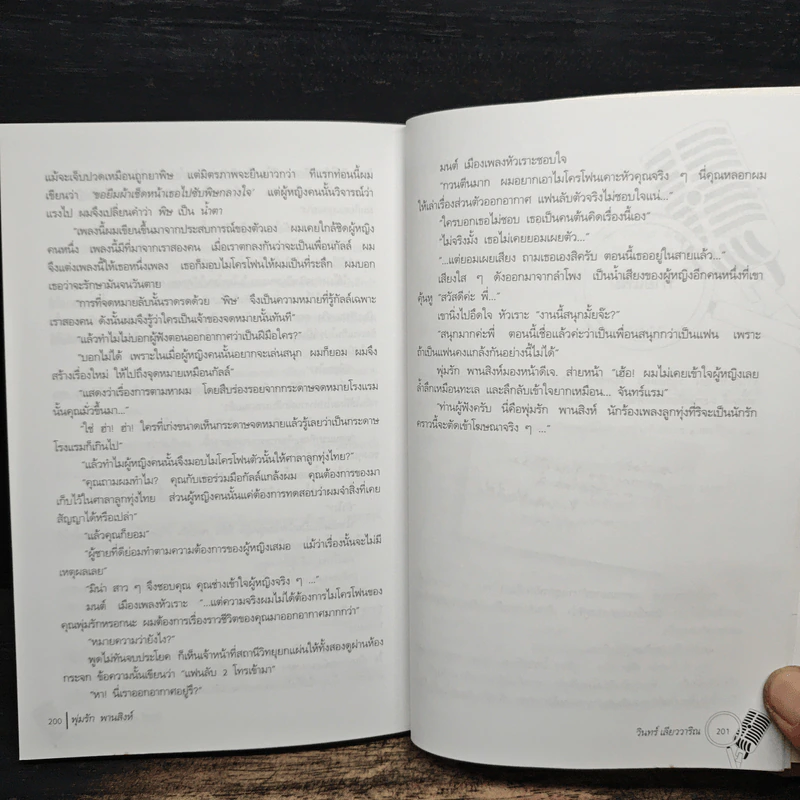 แม้จะเจ็บปวดเหมือนถูกยาพิษ แต่มิตรภาพจะยืนยาวกว่า ทีแรกท่อนนี้ผม
เขียนว่า ‘ขอยืมผ้าเช็ดหน้าเธอไปซับพิษกลางใจ’ แต่ผู้หญิงคนนั้นวิจารณ์ว่า
แรงไป ผมจึงเปลี่ยนคำว่า พิษ เป็น น้ำตา
“เพลงนี้ผมเขียนขึ้นมาจากประสบการณ์ของตัวเอง ผมเคยใกล้ชิดผู้หญิง
คนหนึ่ง เพลงนี้มีที่มาจากเราสองคน เมื่อเราตกลงกันว่าจะเป็นเพื่อนกันดี ผม
จึงแต่งเพลงนี้ให้เธอหนึ่งเพลง เธอก็มอบไมโครโฟนให้ผมเป็นที่ระลึก ผมบอก
เธอว่าจะรักษามันจนวันตาย
“การที่จดหมายลับนั้นราดรดด้วย ‘พิษ’ จึงเป็นความหมายที่รู้กันเฉพาะ
เราสองคน ดังนั้นผมจึงรู้ว่าใครเป็นเจ้าของจดหมายนั้นทันที”
“แล้วทำไมไม่บอกผู้ฟังตอนออกอากาศว่าเป็นฝีมือใคร?”
“บอกไม่ได้ เพราะในเมื่อผู้หญิงคนนั้นอยากจะเล่นสนุก ผมก็ยอม ผมจึง
สร้างเรื่องใหม่ ให้ไปถึงจุดหมายเหมือนกัน”
“แสดงว่าเรื่องการตามหาผม โดยสืบร่องรอยจากกระดาษจดหมายโรงแรม
นั้นคุณมั่วขึ้นมา...”
“ใช่ ฮ่า! ฮ่า! ใครที่เก่งขนาดเห็นกระดาษจดหมายแล้วรู้เลยว่าเป็นกระดาษ
โรงแรมก็เกินไป”
“แล้วทำไมผู้หญิงคนนั้นจึงมอบไมโครโฟนตัวนั้นให้ศาลาลูกทุ่งไทย?”
“คุณถามผมทำไม? คุณกับเธอร่วมมือกันแกล้งผม คุณต้องการของมา
เก็บไว้ในศาลาลูกทุ่งไทย ส่วนผู้หญิงคนนั้นแค่ต้องการทดสอบว่าผมจำสิ่งที่เคย
สัญญาได้หรือเปล่า”
“แล้วคุณก็ยอม”
“ผู้ชายที่ดีย่อมทำตามความต้องการของผู้หญิงเสมอ แม้ว่าเรื่องนั้นจะไม่มี
เหตุผลเลย”
“มิน่า สาว ๆ จึงชอบคุณ คุณช่างเข้าใจผู้หญิงจริง ๆ ...”
มนต์ เมืองเพลงหัวเราะ “...แต่ความจริงผมไม่ได้ต้องการไมโครโฟนของ
คุณพุ่มรักหรอกนะ ผมต้องการเรื่องราวชีวิตของคุณมาออกอากาศมากกว่า”
“หมายความว่ายังไง?”
พูดไม่ทันจบประโยค ก็เห็นเจ้าหน้าที่สถานีวิทยุยกแผ่นให้ทั้งสองดูผ่านห้อง
กระจก ข้อความนั้นเขียนว่า “แฟนลับ 2 โทรเข้ามา”
“หา! นี่เราออกอากาศอยู่รึ?”
200 | พุ่มรัก พานสิงห์
มนต์ เมืองเพลงหัวเราะชอบใจ
“กวนตีนมาก ผมอยากเอาไมโครโฟนเคาะหัวคุณจริง ๆ นี่คุณหลอกผม
ให้เล่าเรื่องส่วนตัวออกอากาศ แฟนลับตัวจริงไม่ชอบใจแน่...”
“ใครบอกเธอไม่ชอบ เธอเป็นคนต้นคิดเรื่องนี้เอง”
“ไม่จริงมั้ง เธอไม่เคยยอมเผยตัว...”
“...แต่ยอมเผยเสียง ถามเธอเองสิครับ ตอนนี้เธออยู่ในสายแล้ว...”
เสียงใส ๆ ดังออกมาจากลำโพง เป็นน้ำเสียงของผู้หญิงอีกคนหนึ่งที่เขา
คุ้นหู “สวัสดีค่ะ พี่...”
เขานิ่งไปอึดใจ หัวเราะ “งานนี้สนุกมั้ยจ๊ะ?”
“สนุกมากค่ะพี่ ตอนนี้เชื่อแล้วค่ะว่าเป็นเพื่อนสนุกกว่าเป็นแฟน เพราะ
ถ้าเป็นแฟนคงแกล้งกันอย่างนี้ไม่ได้”
พุ่มรัก พานสิงห์มองหน้าดีเจ. ส่ายหน้า “เฮ้อ! ผมไม่เคยเข้าใจผู้หญิงเลย
ล้ำลึกเหมือนทะเล และลึกลับเข้าใจยากเหมือน... จันทร์แรม”
“ท่านผู้ฟังครับ นี่คือพุ่มรัก พานสิงห์ นักร้องเพลงลูกทุ่งที่ริจะเป็นนักรัก
คราวนี้จะตัดเข้าโฆษณาจริง ๆ ...”
วินทร์ เลียววาริณ 201